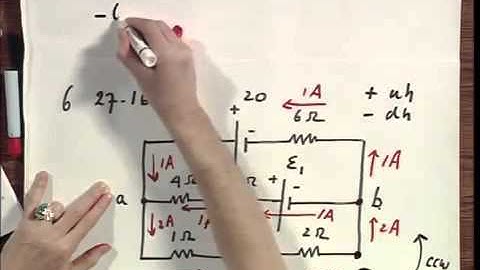 - (
6 27-16 20 1A + uh
+ - 6Ω - dh
1A ε₁ 1A
a 4Ω Ω + - b
2A 1A 1A 2A
1Ω 2Ω CCW